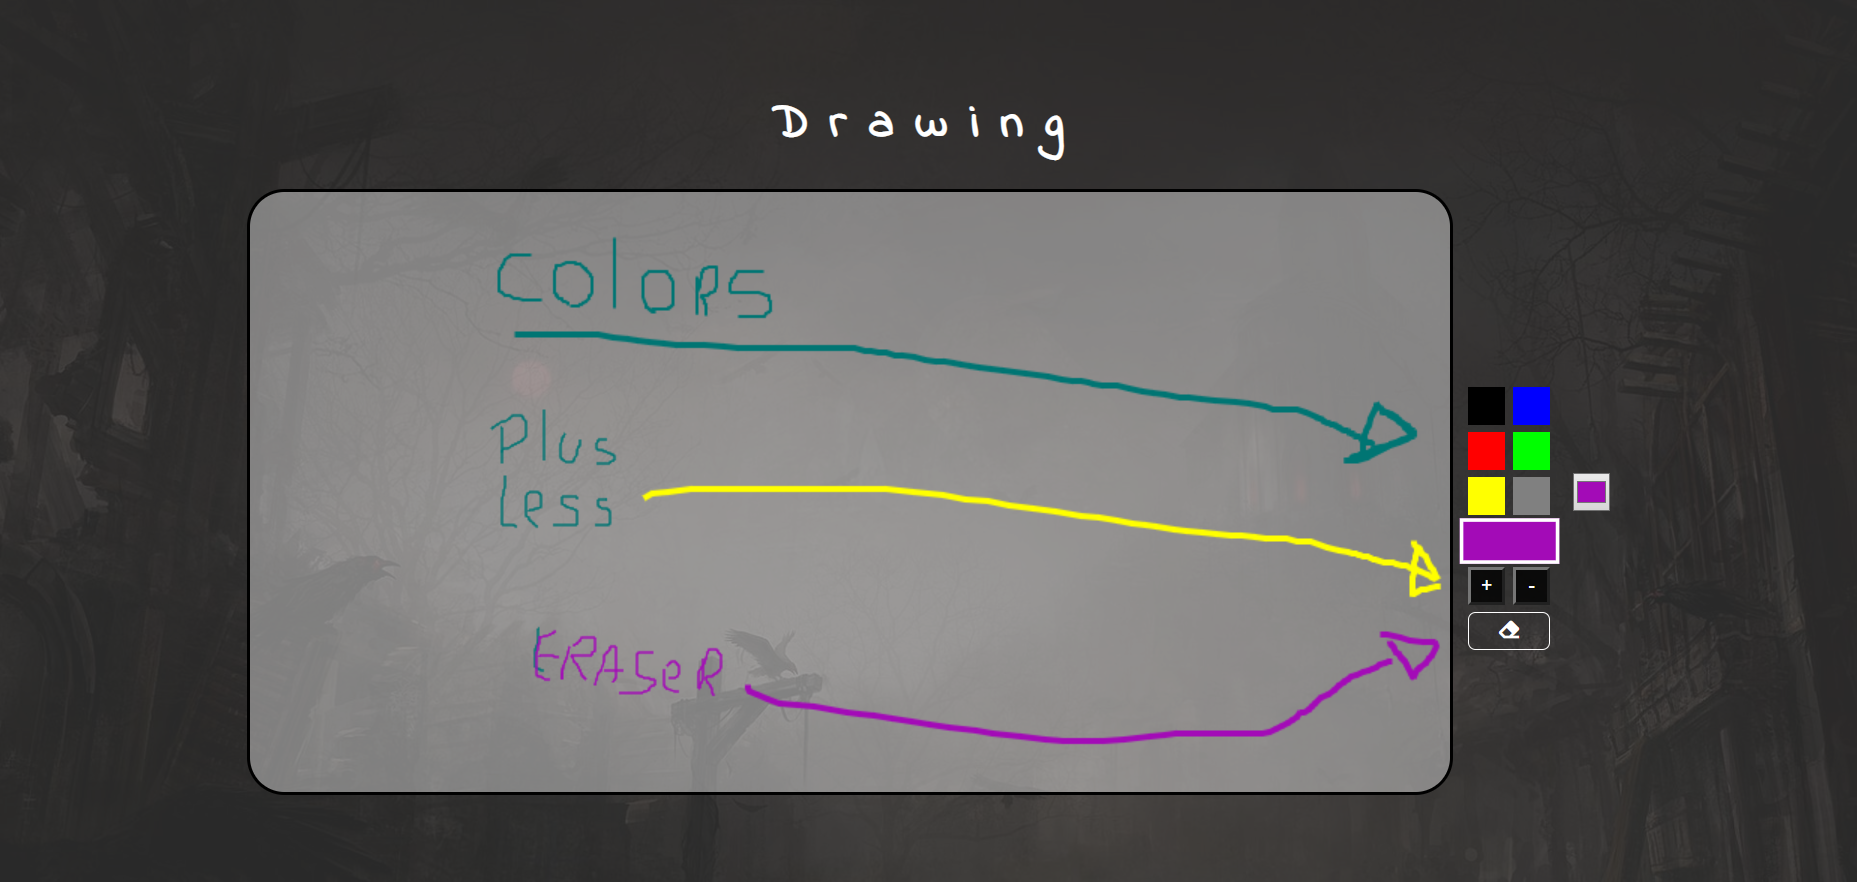 Drawing
Colors
Plus
Less
+ -
ERASeR